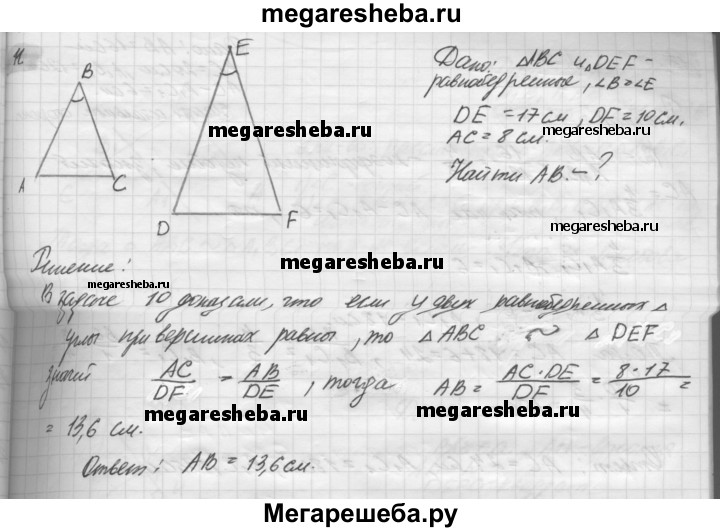 megaresheba.ru
11
B
A
C
E
D
F
Дано: △ABC и △DEF -
равнобедренные, ∠B=∠E
DE = 17 см, DF = 10 см.
AC = 8 см.
megaresheba.ru
megaresheba.ru
Найти AB. - ?
megaresheba.ru
Решение:
megaresheba.ru
megaresheba.ru
В задаче 10 доказали, что если у двух равнобедренных △
углы при вершинах равны, то △ABC ~ △DEF
значит AC/DF = AB/DE, тогда AB = AC·DE/DF = 8·17/10 =
megaresheba.ru
megaresheba.ru
= 13,6 см.
Ответ: AB = 13,6 см.
Мегарешеба.ру